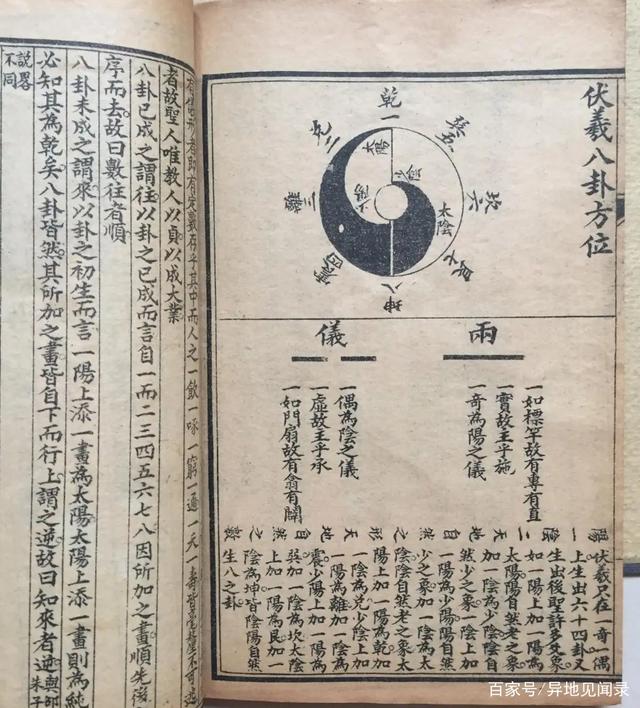 伏羲八卦方位
乾一
兌二
離三
震四
巽五
坎六
艮七
坤八
太陽
少陰
少陽
太陰
兩
一如標竿故有專有直
一實故主乎施
一奇為陽之儀
儀
一偶為陰之儀
一虛故主乎承
一如門扇故有翕有闢
伏羲只在一奇一偶
上生出六十四卦又
生出後聖許多爻象
如一陽上加一陽為
太陽陽自然老之象
加一陰為少陰陰自
然少之象一陰上加
一陽為少陽陽自然
少之象加一陰為太
陰陰自然老之象太
陽上加一陽為乾加
一陰為兌少陰上加
一陽為離加一陰為
震少陽上加一陽為
巽加一陰為坎太陰
上加一陽為艮加一
陰為坤皆陰陽自然
生八之卦
有儀形者即有定數存乎其中而人之一飲一啄一窮一通一夭一壽皆毫釐不可逃
者故聖人唯教人以貞以成大業
八卦已成之謂往以卦之已成而言自一而二三四五六七八因所加之畫順先後
序而去故曰數往者順
八卦未成之謂來以卦之初生而言一陽上添一畫為太陽太陽上添一畫則為純
必知其為乾矣八卦皆然其所加之畫皆自下而行上謂之逆故曰知來者逆與邵朱子
說畧不同
百家号/异地见闻录